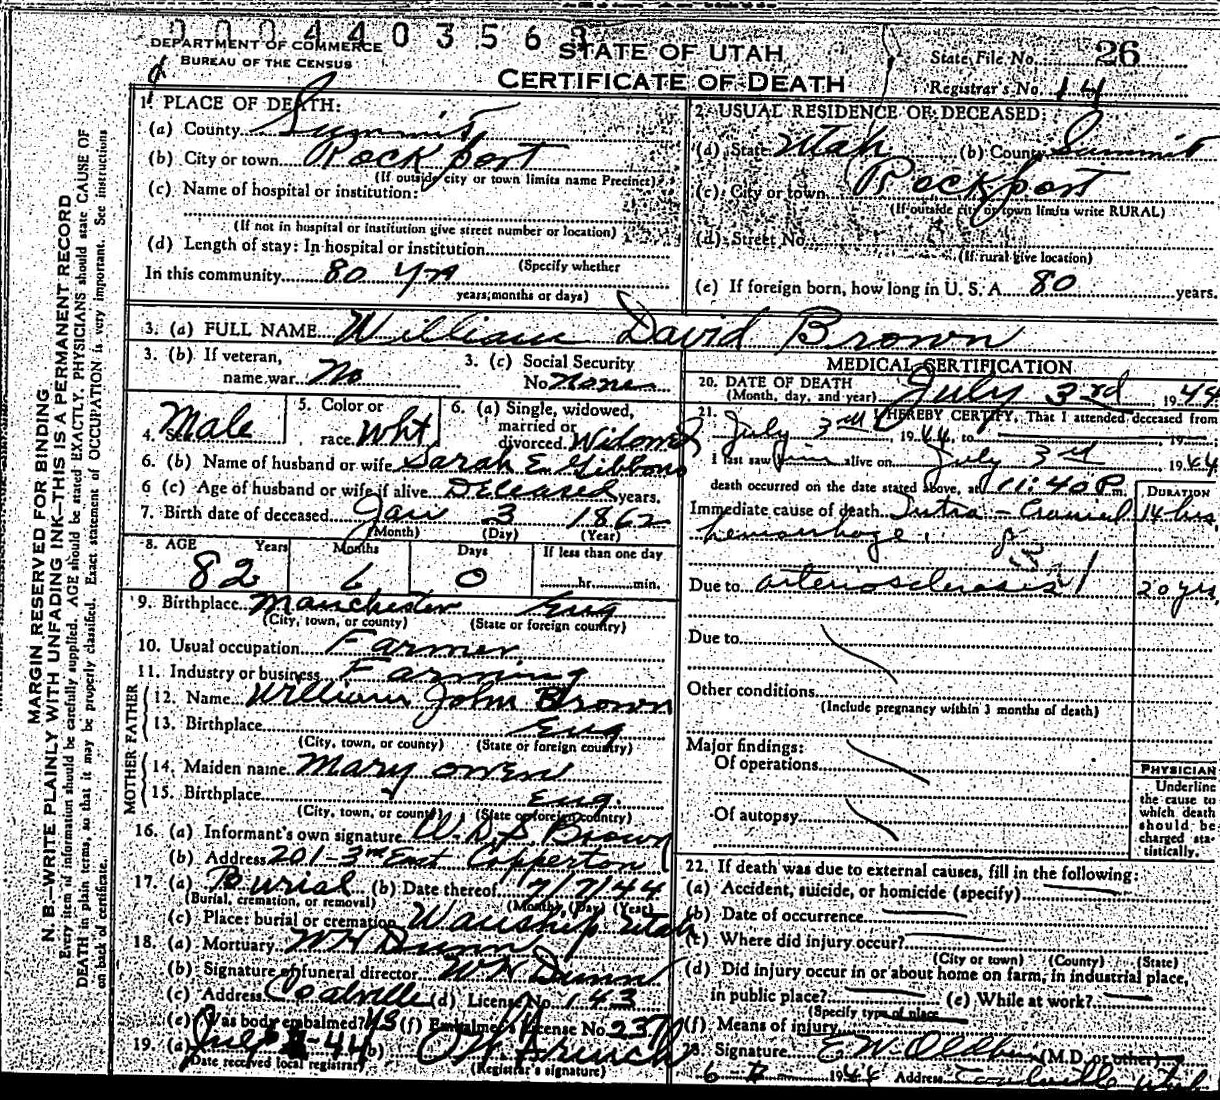 0004403568
DEPARTMENT OF COMMERCE
BUREAU OF THE CENSUS
STATE OF UTAH
CERTIFICATE OF DEATH
State File No. 26
Registrar's No. 14
MARGIN RESERVED FOR BINDING
N. B.—WRITE PLAINLY WITH UNFADING INK—THIS IS A PERMANENT RECORD
Every item of information should be carefully supplied. AGE should be stated EXACTLY. PHYSICIANS should state CAUSE OF
DEATH in plain terms, so that it may be properly classified. Exact statement of OCCUPATION is very important. See instructions
on back of certificate.
1. PLACE OF DEATH:
(a) County Summit
(b) City or town Rockport
(If outside city or town limits name Precinct)
(c) Name of hospital or institution:
(If not in hospital or institution give street number or location)
(d) Length of stay: In hospital or institution
(Specify whether
In this community 80 yrs
years, months or days)
2. USUAL RESIDENCE OF DECEASED:
(a) State Utah (b) County Summit
(c) City or town Rockport
(If outside city or town limits write RURAL)
(d) Street No.
(If rural give location)
(e) If foreign born, how long in U. S. A. 80 years.
3. (a) FULL NAME William David Brown
3. (b) If veteran, name war No
3. (c) Social Security No. None
4. Sex Male
5. Color or race Wht
6. (a) Single, widowed, married or divorced. Widowed
6. (b) Name of husband or wife Sarah E. Gibbons
6 (c) Age of husband or wife if alive Deceased years.
7. Birth date of deceased Jan 3 1862
(Month) (Day) (Year)
8. AGE Years Months Days If less than one day
82 6 0 hr. min.
9. Birthplace Manchester Eng
(City, town, or county) (State or foreign country)
10. Usual occupation Farmer
11. Industry or business Farming
FATHER
12. Name William John Brown
13. Birthplace Eng
(City, town, or county) (State or foreign country)
MOTHER
14. Maiden name Mary Owen
15. Birthplace Eng.
(City, town, or county) (State or foreign country)
16. (a) Informant's own signature W. D. S. Brown
(b) Address 201-3rd East Copperton
17. (a) Burial (b) Date thereof 7/7/44
(Burial, cremation, or removal) (Month) (Day) (Year)
(c) Place: burial or cremation Wanship Utah
18. (a) Mortuary W H Dunn
(b) Signature of funeral director W H Dunn
(c) Address Coalville (d) License No. 143
(e) Was body embalmed? (f) Embalmer's License No. 237
19. (a) -44 (b)
Date received local registrar) (Registrar's signature)
MEDICAL CERTIFICATION
20. DATE OF DEATH July 3rd, 1944
(Month, day, and year)
21. I HEREBY CERTIFY, That I attended deceased from
July 3rd, 1944, to 19
I last saw him alive on July 3rd 1944
death occurred on the date stated above, at 11:40 P. m.
DURATION
Immediate cause of death Intra-Cranial 14 hrs.
hemorrhage.
Due to arteriosclerosis 20 yrs.
Due to
Other conditions
(Include pregnancy within 3 months of death)
Major findings:
Of operations
Of autopsy
PHYSICIAN
Underline the cause to which death should be charged statistically.
22. If death was due to external causes, fill in the following:
(a) Accident, suicide, or homicide (specify)
(b) Date of occurrence
(c) Where did injury occur?
(City or town) (County) (State)
(d) Did injury occur in or about home on farm, in industrial place,
in public place? (e) While at work?
(Specify type of place
(f) Means of injury
23. Signature E W Oldham (M.D. or other)
1944 Address Coalville Utah